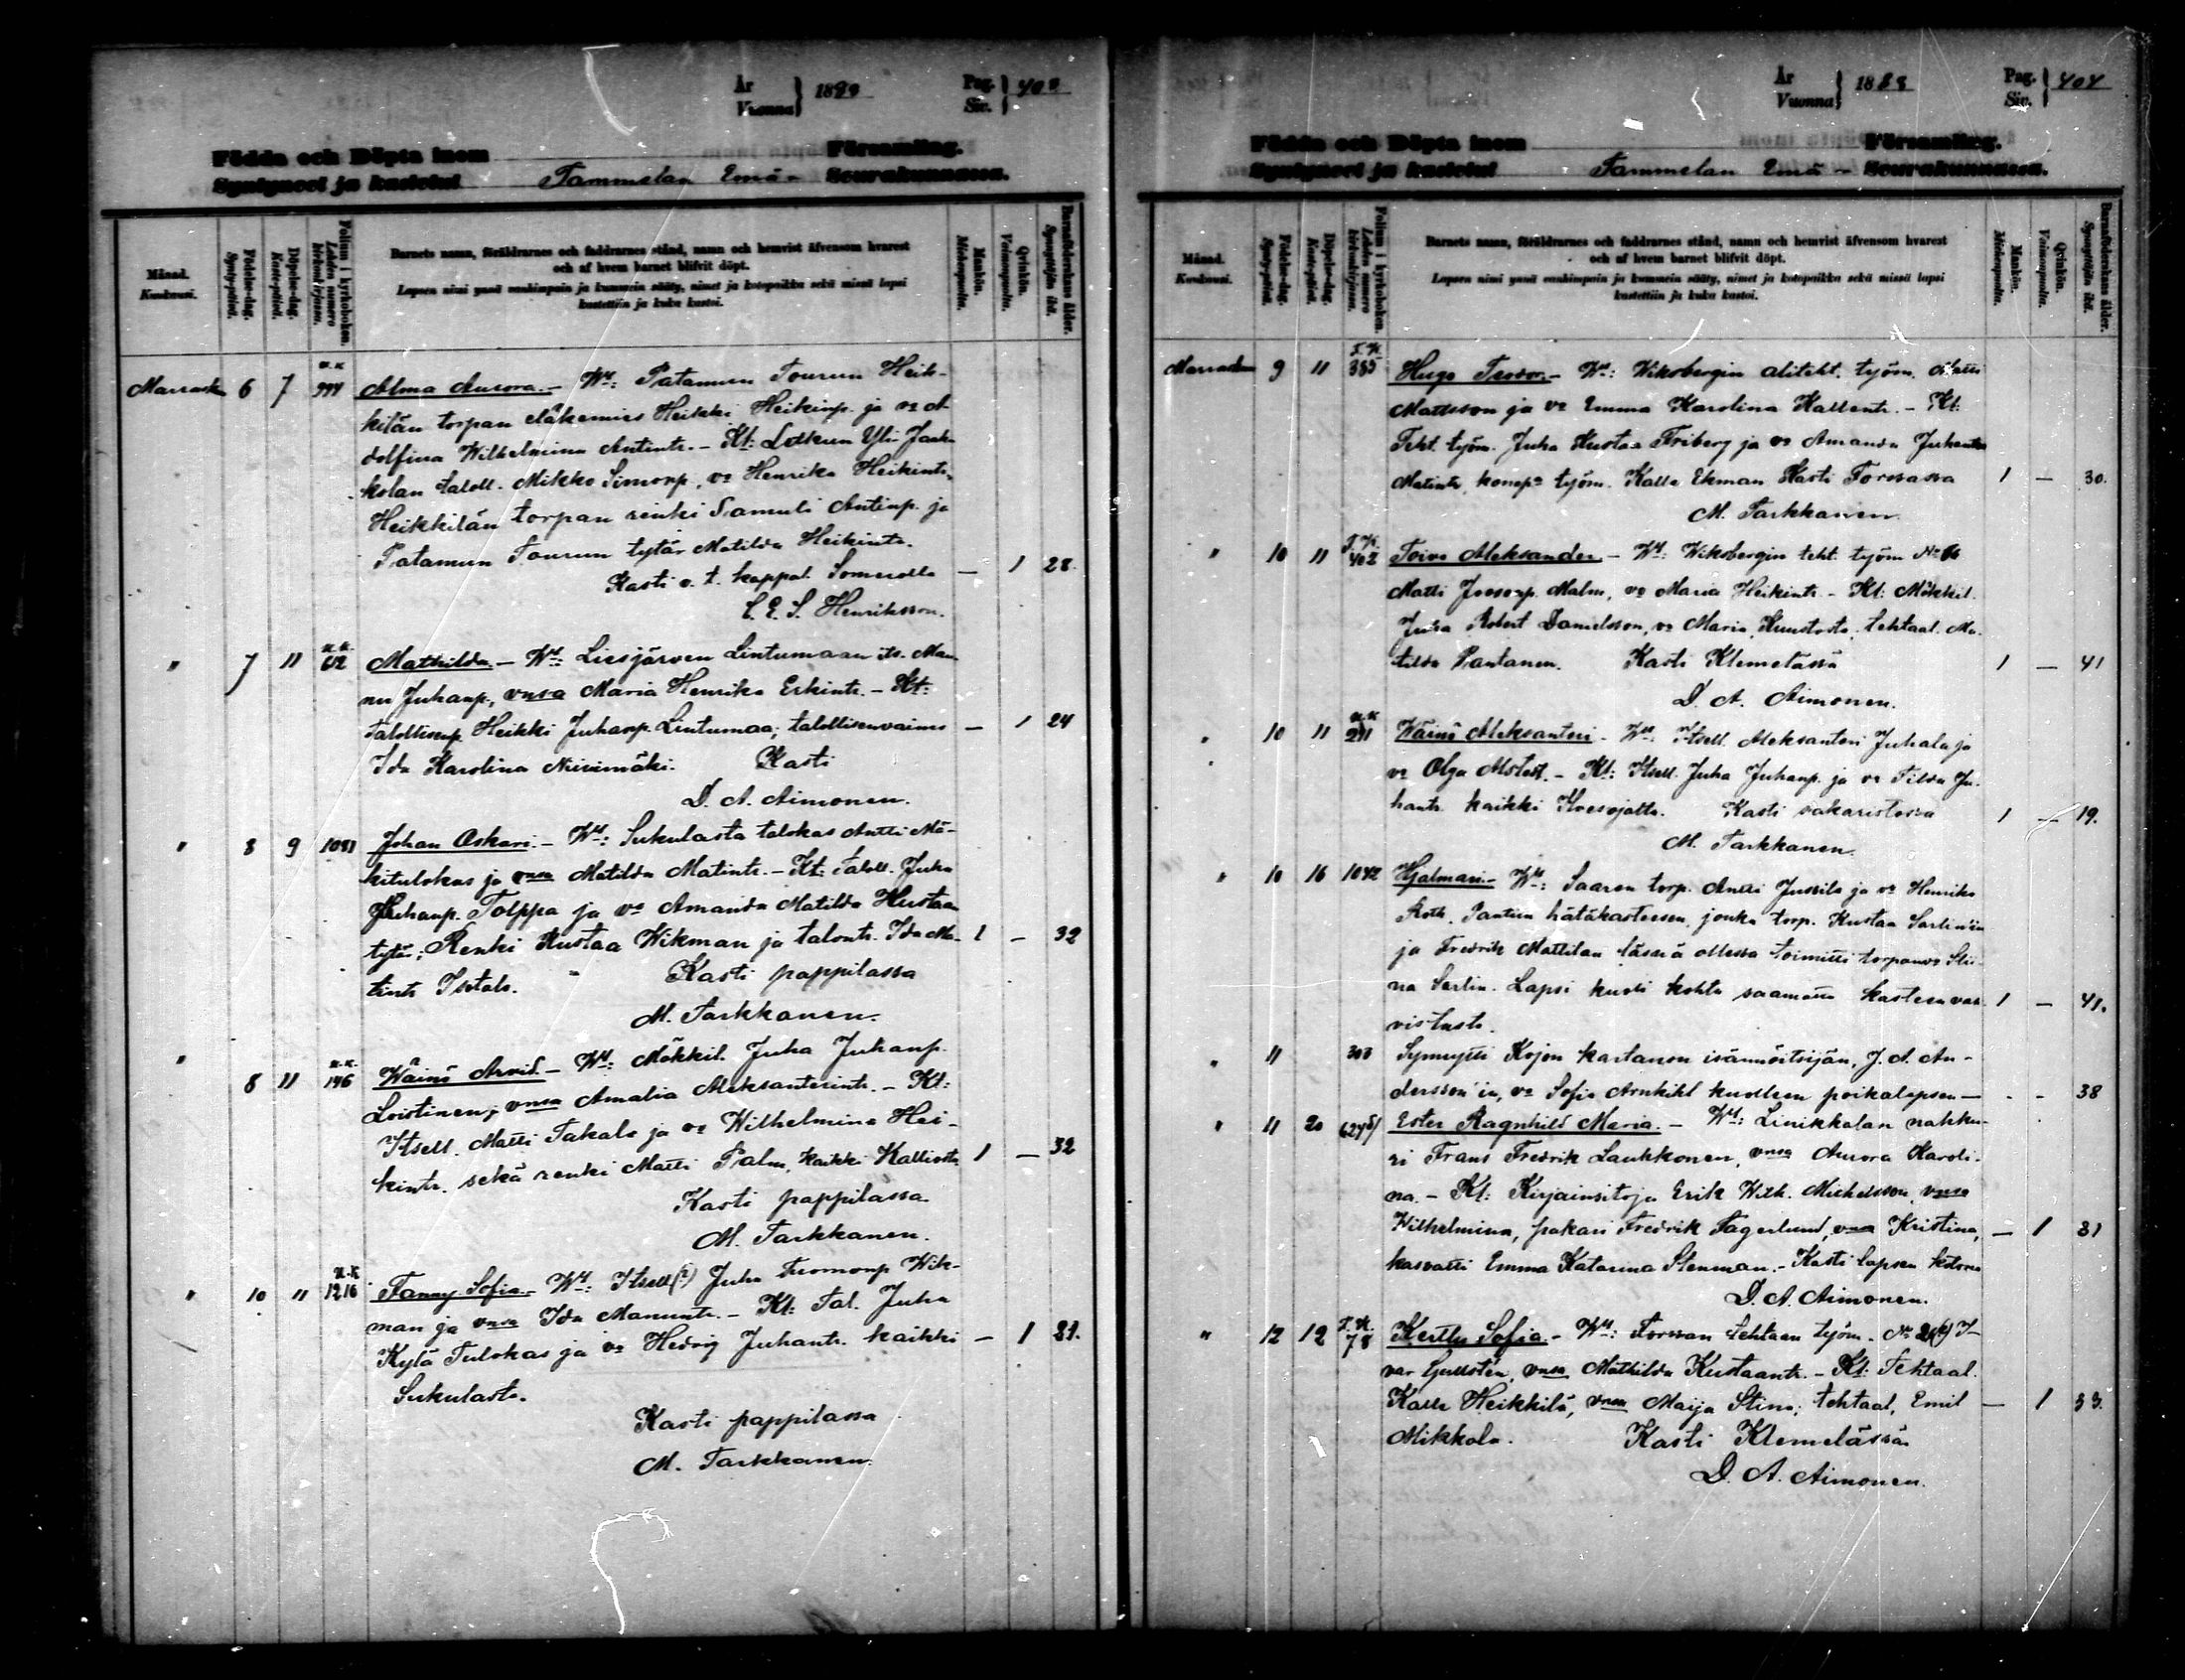 År
Vuonna } 18
Pag.
Siv. } 400
Födda och Döpta inom Församling.
Syntyneet ja kastetut Tammelan Emä- Seurakunnassa.
Månad.
Kuukausi.
Födelse-dag.
Synty-päivä.
Döpelse-dag.
Kaste-päivä.
Folium i kyrkoboken.
Lehden numero kirkonkirjassa.
Barnets namn, föräldrarnes och faddrarnes stånd, namn och hemvist äfvensom hvarest
och af hvem barnet blifvit döpt.
Lapsen nimi ynnä vanhimpain ja kummein sääty, nimet ja kotopaikka sekä missä lapsi
kastettiin ja kuka kastoi.
Mankön.
Miehenpuolta.
Qvinkön.
Vaimonpuolta.
Barnaföderskans ålder.
Synnyttäjän ikä.
Marrask. 6 7 994 Alma Aurora. – Wt: Patamun Tourun Heik-
kilän torpan eläkemies Heikki Heikinp. ja vo A-
dolfina Wilhelmina Antintr. – Kt: Letkun Yli Jaak-
kolan taloll. Mikko Simonp, vo Henrika Heikintr,
Heikkilän torpan renki Samuli Antinp. ja
Patamun Tourun tytär Matilda Heikintr.
Kasti v. t. kappal. Somerolla — 1 28.
C. E. S. Henriksson.
" 7 11 612 Mathilda. – Wt: Liesjärven Lintumaan its. Man-
nu Juhanp, vnsa Maria Henrika Erkintr. – Kt:
Talollisenp. Heikki Juhanp. Lintumaa, talollisenvaimo — 1 24
Ida Karolina Niinimäki. Kasti
D. A. Aimonen.
" 8 9 1081 Johan Oskari. – Wt: Sukulasta talokas Antti Mä-
kitulokas ja vnsa Matilda Matintr. – Kt: Taloll. Juha
Juhanp. Tolppa ja vo Amanda Matilda Kustaan
tytär; Renki Kustaa Wikman ja talontr. Ida Ma- 1 – 32
tintr Isotalo. Kasti pappilassa
M. Tarkkanen.
" 8 11 U.K. 146 Wäinö Arvid. – Wt: Mökkil. Juha Juhanp.
Loistinen, vnsa Amalia Aleksanterintr. – Kt:
Itsell. Matti Takala ja vo Wilhelmina Hei-
kintr. sekä renki Matti Palm, kaikki Kalliosta 1 — 32
Kasti pappilassa
M. Tarkkanen.
" 10 " U.K 1216 Fanny Sofia. – Wt: Itsell(?) Juha Tuomonp Wik-
man ja vnsa Ida Manuntr. – Kt: Tal. Juha
Kylä Tulokas ja vo Hedvig Juhantr. kaikki — 1 21.
Sukulasta.
Kasti pappilassa
M. Tarkkanen.
År
Vuonna } 1888
Pag.
Siv. } 401
Födda och Döpta inom Församling.
Syntyneet ja kastetut Tammelan Emä- Seurakunnassa.
Månad.
Kuukausi.
Födelse-dag.
Synty-päivä.
Döpelse-dag.
Kaste-päivä.
Folium i kyrkoboken.
Lehden numero kirkonkirjassa.
Barnets namn, föräldrarnes och faddrarnes stånd, namn och hemvist äfvensom hvarest
och af hvem barnet blifvit döpt.
Lapsen nimi ynnä vanhimpain ja kummein sääty, nimet ja kotopaikka sekä missä lapsi
kastettiin ja kuka kastoi.
Mankön.
Miehenpuolta.
Qvinkön.
Vaimonpuolta.
Barnaföderskans ålder.
Synnyttäjän ikä.
Marraskuu 9 11 T.K. 385 Hugo Teodor. – Wt: Wiksbergin aliteht. työm. Matti
Mattsson ja vo Emma Karolina Kallentr. – Kt:
Teht. työm. Juha Kustaa Friberg ja vo Amanda Juhantr
Matintr, konep. työm. Kalle Ekman Kasti Forssassa 1 — 30.
M. Tarkkanen.
" 10 11 T.K. 402 Toivo Aleksander – Wt: Wiksbergin teht. työm No
Matti Joosonp. Malm, vo Maria Heikintr. – Kt: Mökkil.
Juha Robert Danielsson, vo Maria, tehtaal. Ma-
tilda Rantanen. Kasti Klemelässä 1 — 41
D. A. Aimonen.
" 10 11 U.K 211 Wäinö Aleksanteri – Wt: Itsell. Aleksanteri Juhala ja
vo Olga – Kt: Itsell. Juha Juhanp. ja vo Tilda Ju-
hantr. kaikki Koesojalta. Kasti sakaristossa 1 — 19.
M. Tarkkanen.
" 10 16 1042 Hjalmari. – Wt: Saaren torp. Antti Jussila ja vo Henrika
Roth. Pantiin hätäkasteesen, jonka torp. Kustaa Sarlin'in
ja Fredrik Mattilan läsnä ollessa toimitti torpanvo Stii-
na Sarlin. Lapsi kuoli kohta saamatta kasteen vah- 1 — 41.
vistusta.
" 11 303 Synnytti Kojon kartanon isännöitsijän, J. A. An-
dersson'in, vo Sofia Arnkihl kuolleen poikalapsen — - - 38
" 11 20 Ester Ragnhild Maria. – Wt: Linikkalan nahku-
ri Frans Fredrik Laukkonen, vnsa Aurora Karoli-
na. – Kt: Kirjainsitoja Erik Wilh. Michelsson, vnsa
Wilhelmina, pakari Fredrik Fagerlund, vnsa Kristina, — 1 31
kasvatti Emma Katarina Stenman. – Kasti lapsen kotona
D. A. Aimonen.
" 12 12 T.K. 78 Kerttu Sofia. – Wt: Forssan tehtaan työm. No I-
var Gullstén, vnsa Mathilda Kustaantr. – Kt: Tehtaal.
Kalle Heikkilä, vnsa Maija Stina; tehtaal, Emil — 1 33.
Mikkola. Kasti Klemelässä
D. A. Aimonen.